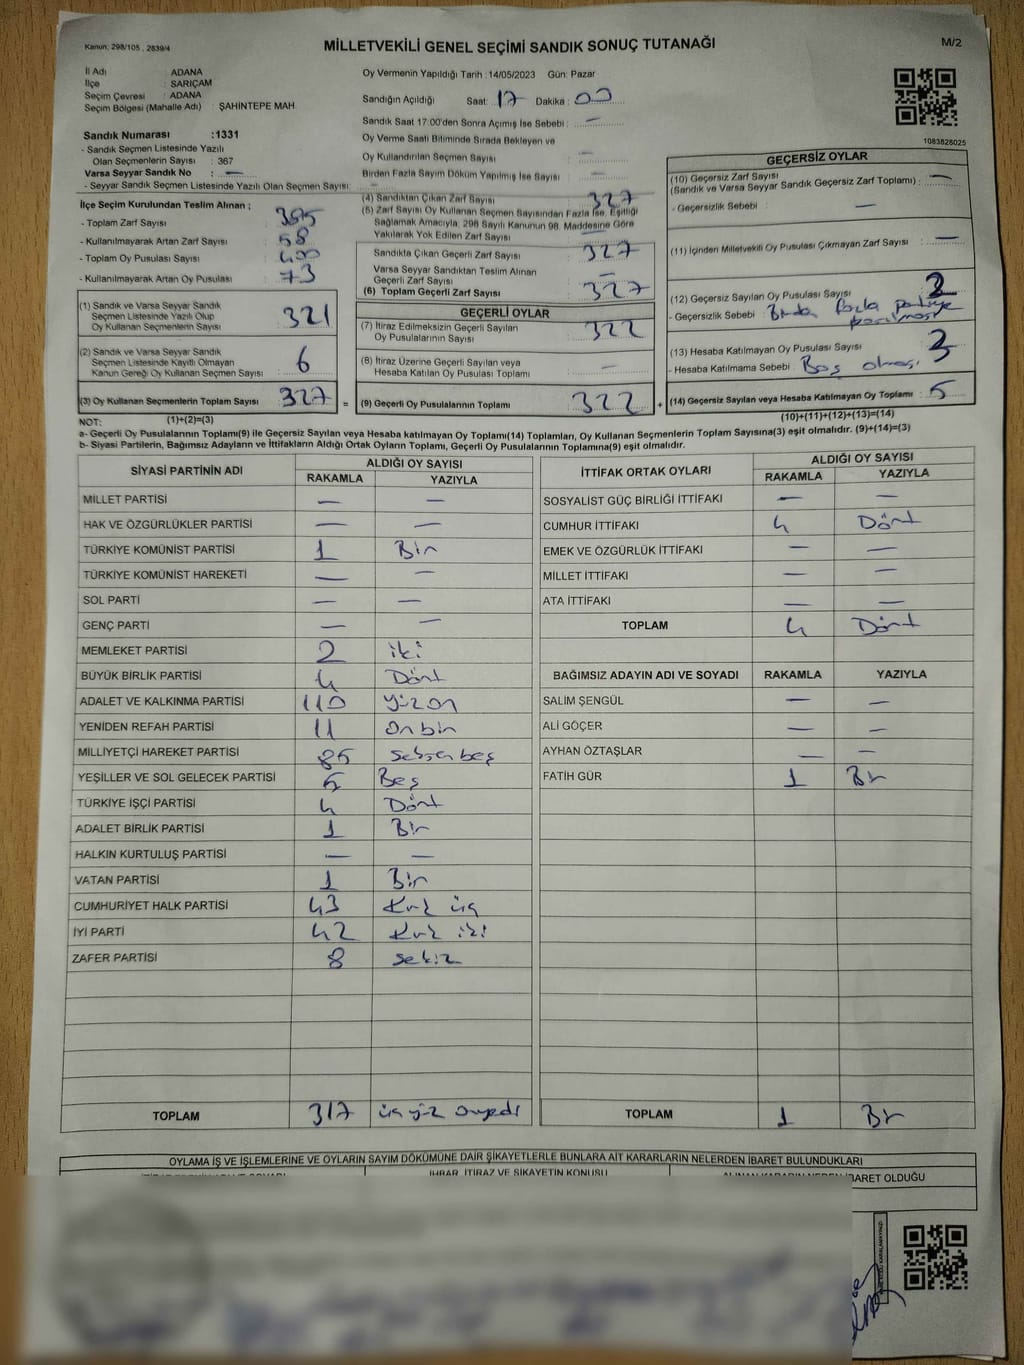 Kanun: 298/105 , 2839/4
MİLLETVEKİLİ GENEL SEÇİMİ SANDIK SONUÇ TUTANAĞI
M/2
İl Adı : ADANA
İlçe : SARIÇAM
Seçim Çevresi : ADANA
Seçim Bölgesi (Mahalle Adı) : ŞAHİNTEPE MAH
Sandık Numarası :1331
- Sandık Seçmen Listesinde Yazılı
Olan Seçmenlerin Sayısı : 367
Varsa Seyyar Sandık No : —
- Seyyar Sandık Seçmen Listesinde Yazılı Olan Seçmen Sayısı: —
Oy Vermenin Yapıldığı Tarih :14/05/2023 Gün: Pazar
Sandığın Açıldığı Saat: 17 Dakika : 00
Sandık Saat 17:00'den Sonra Açımış İse Sebebi : —
Oy Verme Saati Bitiminde Sırada Bekleyen ve
Oy Kullandırılan Seçmen Sayısı : —
Birden Fazla Sayım Döküm Yapılmış İse Sayısı : —
1083828025
İlçe Seçim Kurulundan Teslim Alınan ;
- Toplam Zarf Sayısı : 385
- Kullanılmayarak Artan Zarf Sayısı : 58
- Toplam Oy Pusulası Sayısı : 400
- Kullanılmayarak Artan Oy Pusulası : 73
(1) Sandık ve Varsa Seyyar Sandık
Seçmen Listesinde Yazılı Olup
Oy Kullanan Seçmenlerin Sayısı : 321
(2) Sandık ve Varsa Seyyar Sandık
Seçmen Listesinde Kayıtlı Olmayan
Kanun Gereği Oy Kullanan Seçmen Sayısı : 6
(3) Oy Kullanan Seçmenlerin Toplam Sayısı : 327
(4) Sandıktan Çıkan Zarf Sayısı : 327
(5) Zarf Sayısı Oy Kullanan Seçmen Sayısından Fazla İse, Eşitliği
Sağlamak Amacıyla, 298 Sayılı Kanunun 98. Maddesine Göre
Yakılarak Yok Edilen Zarf Sayısı : —
Sandıkta Çıkan Geçerli Zarf Sayısı : 327
Varsa Seyyar Sandıktan Teslim Alınan
Geçerli Zarf Sayısı : —
(6) Toplam Geçerli Zarf Sayısı : 327
GEÇERLİ OYLAR
(7) İtiraz Edilmeksizin Geçerli Sayılan
Oy Pusulalarının Sayısı : 322
(8) İtiraz Üzerine Geçerli Sayılan veya
Hesaba Katılan Oy Pusulası Toplamı : —
= (9) Geçerli Oy Pusulalarının Toplamı : 322
GEÇERSİZ OYLAR
(10) Geçersiz Zarf Sayısı
(Sandık ve Varsa Seyyar Sandık Geçersiz Zarf Toplamı) : —
- Geçersizlik Sebebi : —
(11) İçinden Milletvekili Oy Pusulası Çıkmayan Zarf Sayısı : —
(12) Geçersiz Sayılan Oy Pusulası Sayısı : 2
- Geçersizlik Sebebi : Birden fazla partiye
basılması
(13) Hesaba Katılmayan Oy Pusulası Sayısı : 3
- Hesaba Katılmama Sebebi : Boş olması
+ (14) Geçersiz Sayılan veya Hesaba Katılmayan Oy Toplamı : 5
NOT: (1)+(2)=(3)
(10)+(11)+(12)+(13)=(14)
a- Geçerli Oy Pusulalarının Toplamı(9) ile Geçersiz Sayılan veya Hesaba katılmayan Oy Toplamı(14) Toplamları, Oy Kullanan Seçmenlerin Toplam Sayısına(3) eşit olmalıdır. (9)+(14)=(3)
b- Siyasi Partilerin, Bağımsız Adayların ve İttifakların Aldığı Ortak Oyların Toplamı, Geçerli Oy Pusulalarının Toplamına(9) eşit olmalıdır.
SİYASİ PARTİNİN ADI ALDIĞI OY SAYISI
RAKAMLA YAZIYLA
MİLLET PARTİSİ — —
HAK VE ÖZGÜRLÜKLER PARTİSİ — —
TÜRKİYE KOMÜNİST PARTİSİ 1 Bir
TÜRKİYE KOMÜNİST HAREKETİ — —
SOL PARTİ — —
GENÇ PARTİ — —
MEMLEKET PARTİSİ 2 iki
BÜYÜK BİRLİK PARTİSİ 4 Dört
ADALET VE KALKINMA PARTİSİ 110 yüz on
YENİDEN REFAH PARTİSİ 11 on bir
MİLLİYETÇİ HAREKET PARTİSİ 85 seksen beş
YEŞİLLER VE SOL GELECEK PARTİSİ 5 Beş
TÜRKİYE İŞÇİ PARTİSİ 4 Dört
ADALET BİRLİK PARTİSİ 1 Bir
HALKIN KURTULUŞ PARTİSİ — —
VATAN PARTİSİ 1 Bir
CUMHURİYET HALK PARTİSİ 43 Kırk üç
İYİ PARTİ 42 Kırk iki
ZAFER PARTİSİ 8 sekiz
TOPLAM 317 üç yüz onyedi
İTTİFAK ORTAK OYLARI ALDIĞI OY SAYISI
RAKAMLA YAZIYLA
SOSYALİST GÜÇ BİRLİĞİ İTTİFAKI — —
CUMHUR İTTİFAKI 4 Dört
EMEK VE ÖZGÜRLÜK İTTİFAKI — —
MİLLET İTTİFAKI — —
ATA İTTİFAKI — —
TOPLAM 4 Dört
BAĞIMSIZ ADAYIN ADI VE SOYADI RAKAMLA YAZIYLA
SALİM ŞENGÜL — —
ALİ GÖÇER — —
AYHAN ÖZTAŞLAR — —
FATİH GÜR 1 Bir
TOPLAM 1 Bir
OYLAMA İŞ VE İŞLEMLERİNE VE OYLARIN SAYIM DÖKÜMÜNE DAİR ŞİKAYETLERLE BUNLARA AİT KARARLARIN NELERDEN İBARET BULUNDUKLARI
İHBAR, İTİRAZ VE ŞİKAYETİN KONUSU
İBARET OLDUĞU